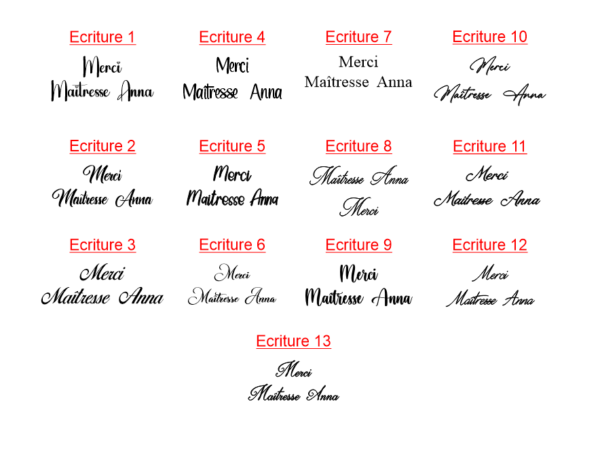 Ecriture 1
Merci
Maîtresse Anna
Ecriture 4
Merci
Maîtresse Anna
Ecriture 7
Merci
Maîtresse Anna
Ecriture 10
Merci
Maîtresse Anna
Ecriture 2
Merci
Maîtresse Anna
Ecriture 5
Merci
Maîtresse Anna
Ecriture 8
Maîtresse Anna
Merci
Ecriture 11
Merci
Maîtresse Anna
Ecriture 3
Merci
Maîtresse Anna
Ecriture 6
Merci
Maîtresse Anna
Ecriture 9
Merci
Maîtresse Anna
Ecriture 12
Merci
Maîtresse Anna
Ecriture 13
Merci
Maîtresse Anna